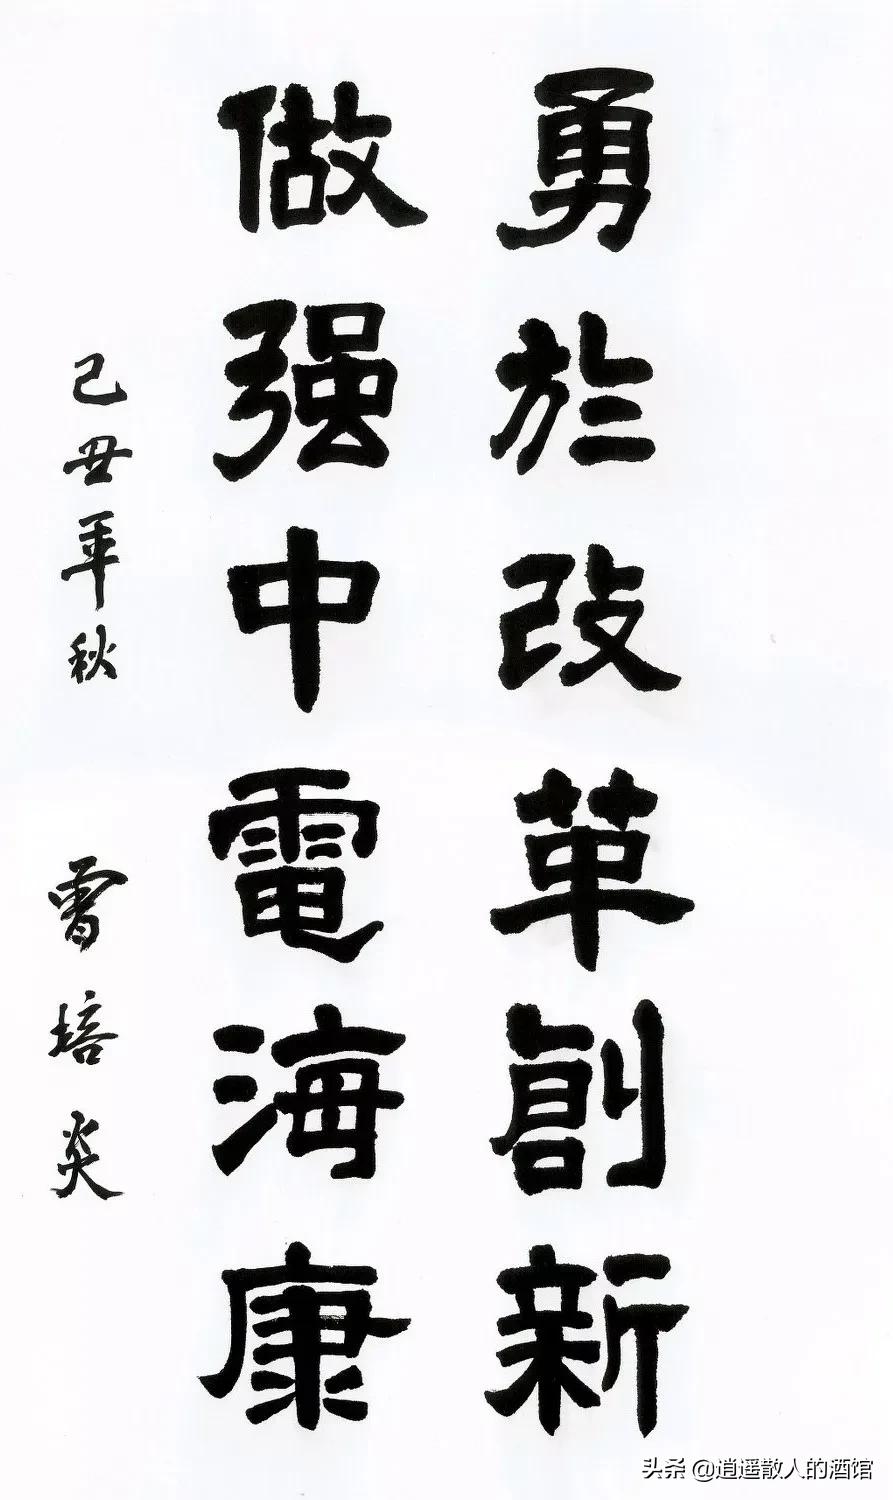 勇於改革創新
做强中電海康
己丑年秋 曾培炎
头杀 @逍遥散人的酒馆